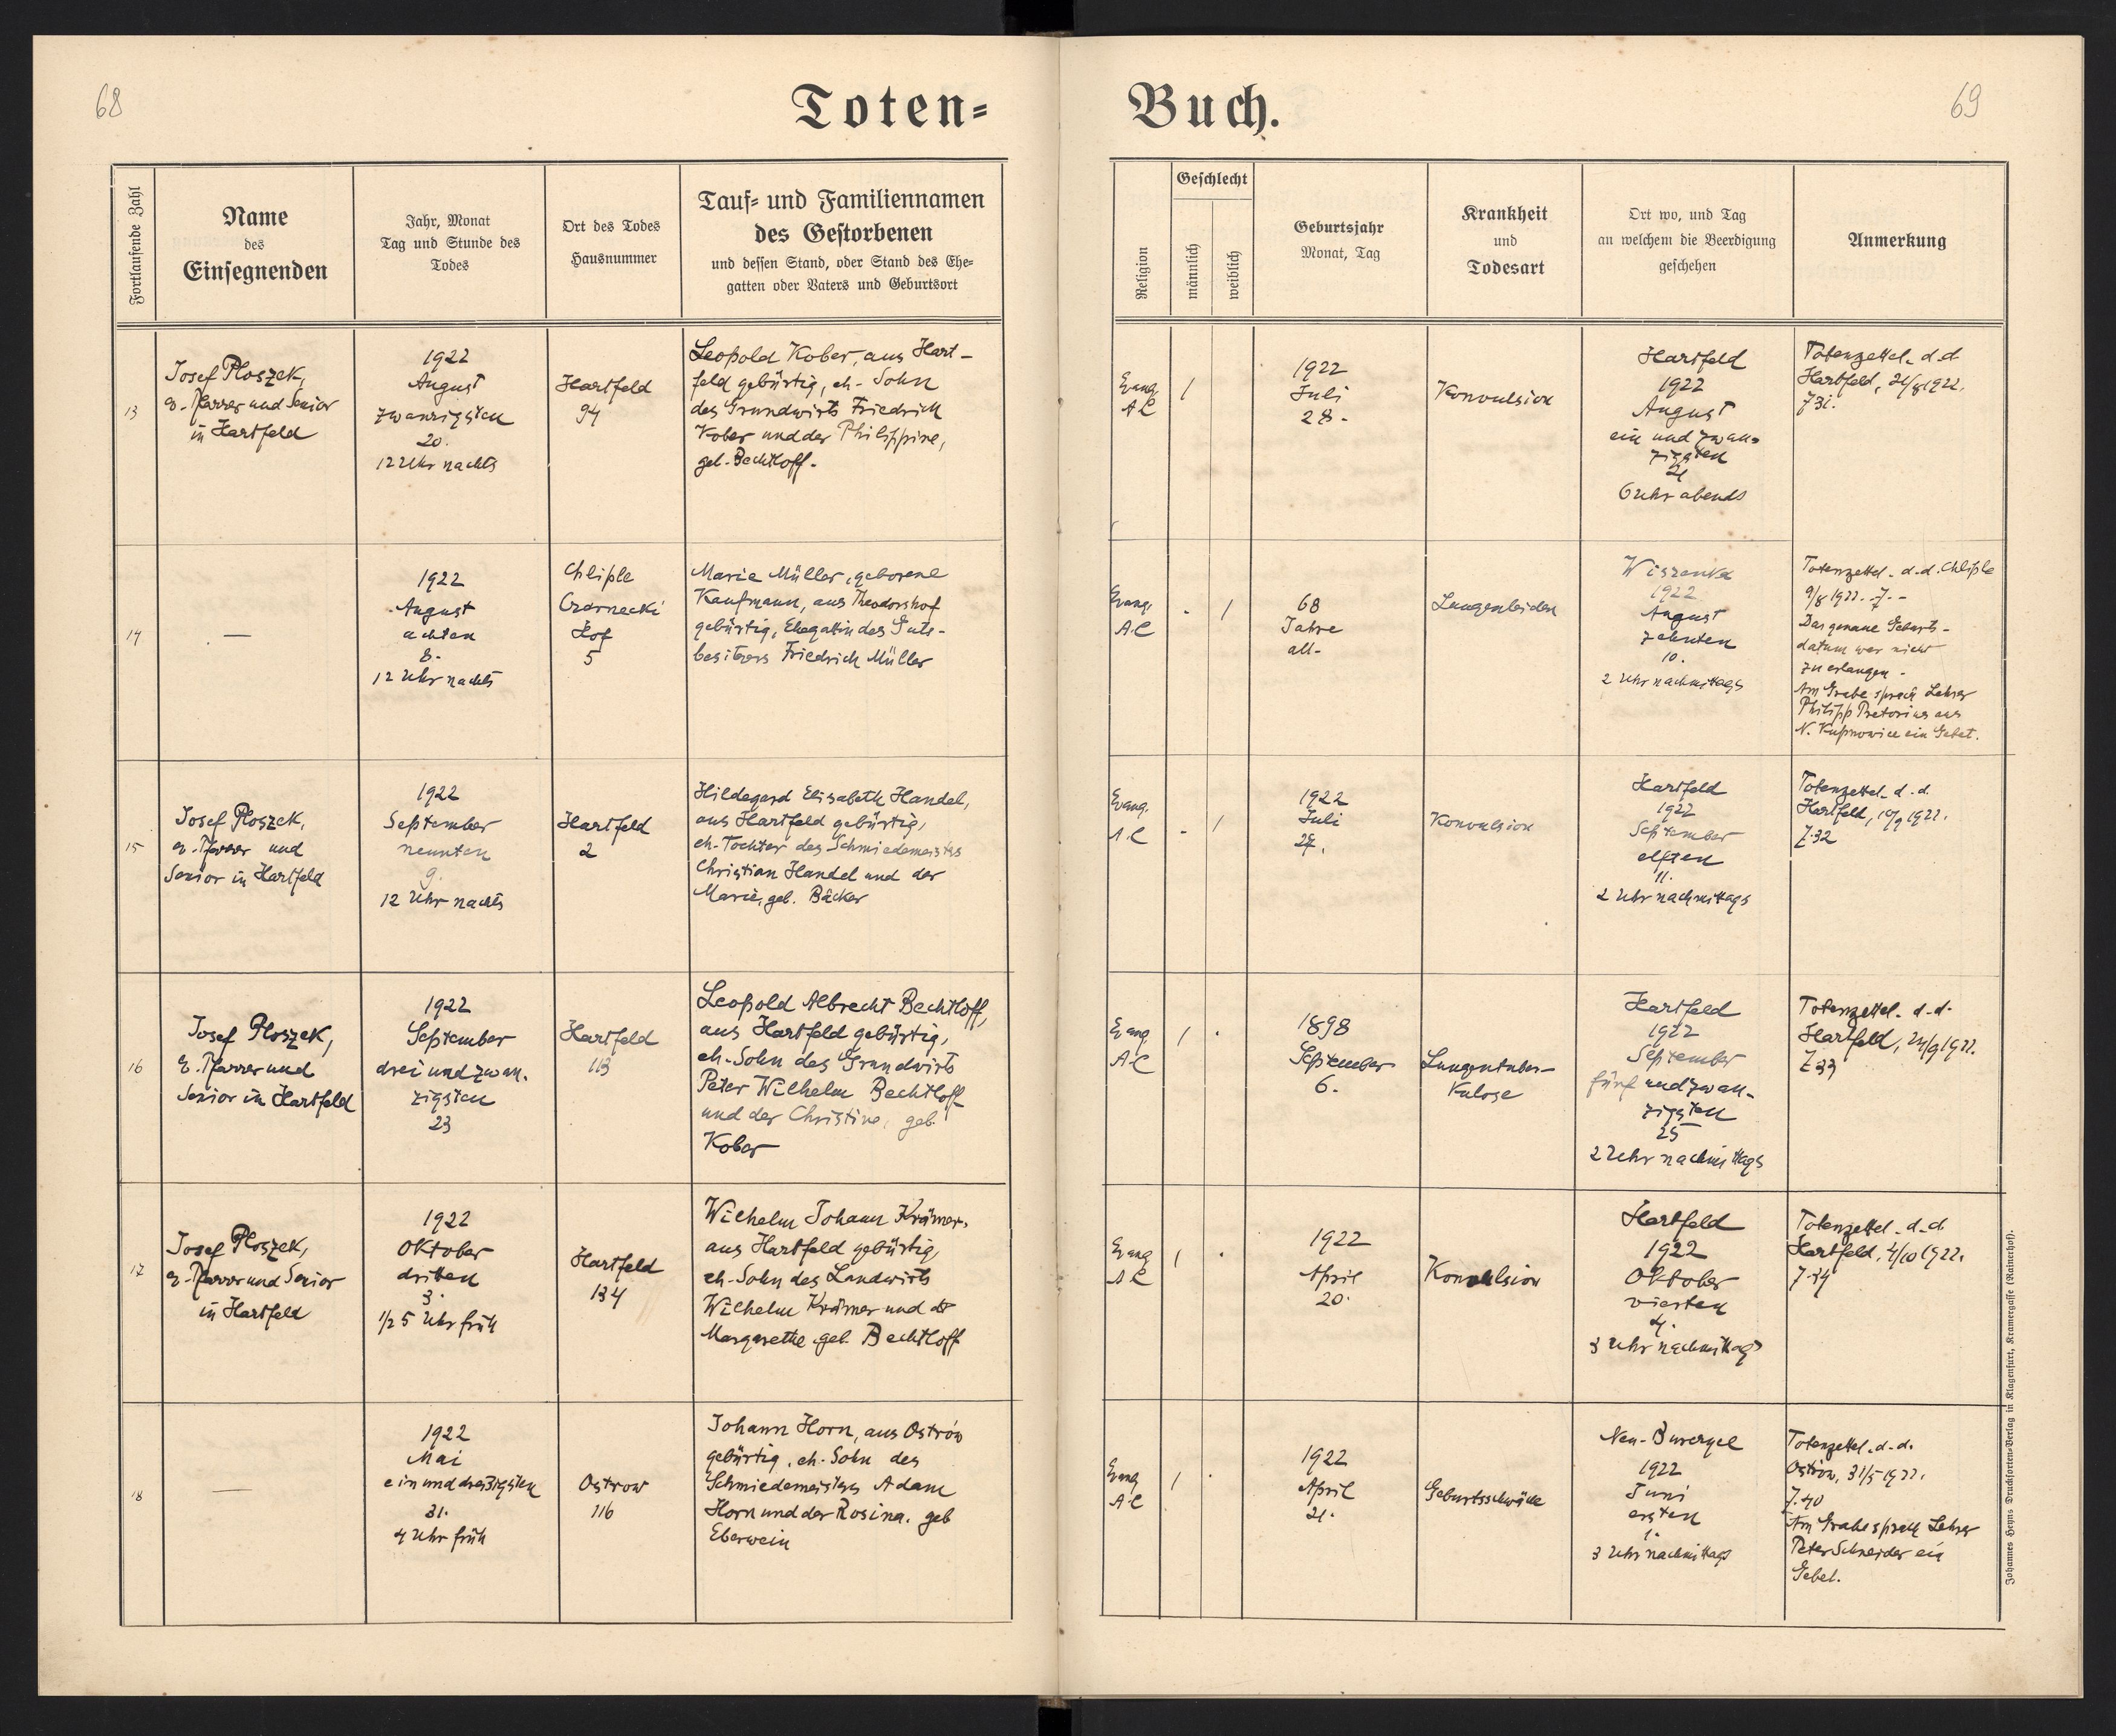 68
Toten=
Fortlaufende Zahl
Name
des
Einsegnenden
Jahr, Monat
Tag und Stunde des
Todes
Ort des Todes
Hausnummer
Tauf= und Familiennamen
des Gestorbenen
und dessen Stand, oder Stand des Ehe=
gatten oder Vaters und Geburtsort
13
Josef Ploszek,
ev. Pfarrer und Senior
in Hartfeld
1922
August
zwanzigsten
20.
12 Uhr nachts
Hartfeld
94
Leopold Kober, aus Hart-
feld gebürtig, eh. Sohn
des Grundwirts Friedrich
Kober und der Philippine,
geb. Bechtloff.
14
—
1922
August
achten
8.
12 Uhr nachts
Chliple
Czarnecki
Hof
5
Marie Müller, geborene
Kaufmann, aus Theodorshof
gebürtig, Ehegattin des Guts-
besitzers Friedrich Müller
15
Josef Ploszek,
ev. Pfarrer und
Senior in Hartfeld
1922
September
neunten
9.
12 Uhr nachts
Hartfeld
2
Hildegard Elisabeth Handel,
aus Hartfeld gebürtig,
eh. Tochter des Schmiedemeisters
Christian Handel und der
Marie, geb. Bäcker
16
Josef Ploszek,
ev. Pfarrer und
Senior in Hartfeld
1922
September
drei und zwan-
zigsten
23
Hartfeld
113
Leopold Albrecht Bechtloff,
aus Hartfeld gebürtig,
eh. Sohn des Grundwirts
Peter Wilhelm Bechtloff
und der Christine, geb.
Kober
17
Josef Ploszek,
ev. Pfarrer und Senior
in Hartfeld
1922
Oktober
dritten
3.
1/2 5 Uhr früh
Hartfeld
134
Wilhelm Johann Krämer,
aus Hartfeld gebürtig,
eh. Sohn des Landwirts
Wilhelm Krämer und der
Margarethe geb. Bechtloff
18
—
1922
Mai
ein und dreißigsten
31.
4 Uhr früh
Ostrow
116
Johann Horn, aus Ostrów
gebürtig, eh. Sohn des
Schmiedemeisters Adam
Horn und der Rosina, geb
Eberwein
Buch.
69
Religion
Geschlecht
männlich
weiblich
Geburtsjahr
Monat, Tag
Krankheit
und
Todesart
Ort wo, und Tag
an welchem die Beerdigung
geschehen
Anmerkung
Evang.
A C
/
1922
Juli
28.
Konvulsion
Hartfeld
1922
August
ein und zwan-
zigsten
21
6 Uhr abends
Totenzettel d.d
Hartfeld, 21/8 1922.
Z 31.
Evang.
A.C
- /
68
Jahre
alt.
Lungenleiden
Wiszenka
1922
August
zehnten
10.
2 Uhr nachmittags
Totenzettel d.d. Chliple
9/8 1922. Z. -
Das genaue Geburts-
datum war nicht
zu erlangen.
Am Grabe sprach Lehrer
Philipp Pretorius aus
N. Kupnowice ein Gebet.
Evang.
A C
- /
1922
Juli
Konvulsion
Hartfeld
1922
September
elften
11.
2 Uhr nachmittags
Totenzettel d. d.
Hartfeld, 10/9 1922.
Z.32
Evang
A.C
/ .
1898
September
6.
Lungentuber-
kulose
Hartfeld
1922
September
fünf und zwan-
zigsten
25
2 Uhr nachmittags
Totenzettel d.d.
Hartfeld, 24/9 1922.
Z 33
Evang
A C
/ .
1922
April
20.
Konvulsion
Hartfeld
1922
Oktober
vierten
4.
3 Uhr nachmittags
Totenzettel d.d
Hartfeld, 4/10 1922.
Z.34
Evang
A C
/ .
1922
April
21.
Geburtsschwäche
Neu-Burczyce
1922
Juni
ersten
1.
3 Uhr nachmittags
Totenzettel d.d.
Ostrów, 31/5 1922.
Z.40
Am Grabe sprach Lehrer
Peter Schneider ein
Gebet.
Johannes Heyns Drucksorten-Verlag in Klagenfurt, Kramergasse (Rainerhof).